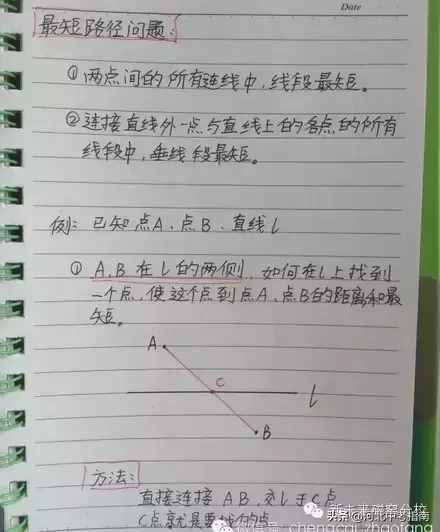 Date
最短路径问题:
①两点间的所有连线中,线段最短。
②连接直线外一点与直线上的各点的所有
线段中,垂线段最短。
例: 已知点A、点B、直线l
① A.B 在l的两侧,如何在l上找到
一个点,使这个点到点A、点B的距离和最
短。
A
C
l
B
方法:
直接连接 AB,交l于C点
C点就是要找的点
头条@河北中考指南
微信号: chengcai_zhaofang